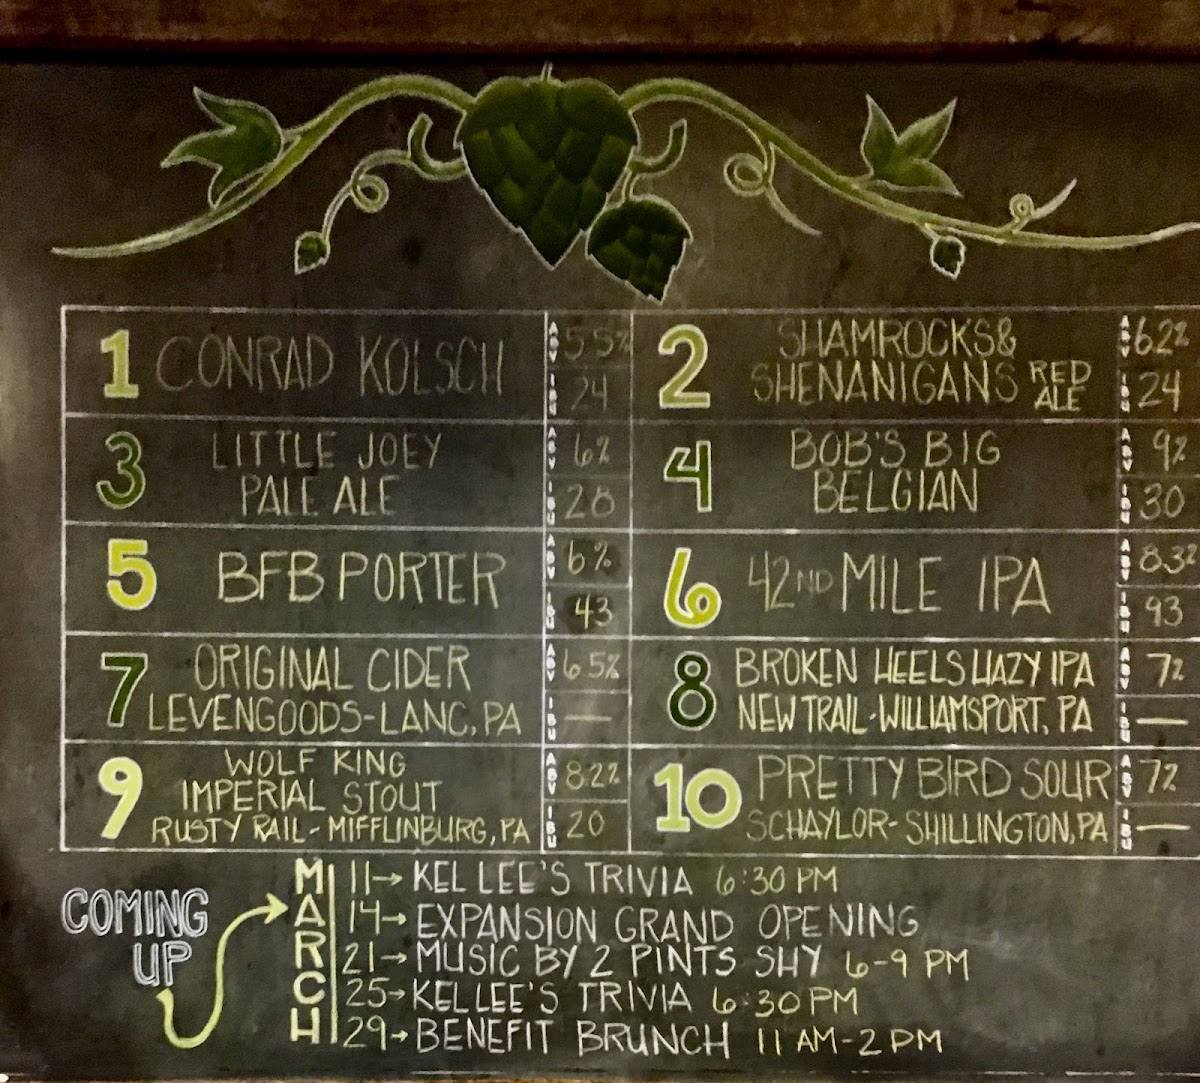 1 CONRAD KOLSCH ABV 5.5% IBU 24
2 SHAMROCKS&
SHENANIGANS RED ALE ABV 6.2% IBU 24
3 LITTLE JOEY
PALE ALE ABV 6% IBU 28
4 BOB'S BIG
BELGIAN ABV 9% IBU 30
5 BFB PORTER ABV 6% IBU 43
6 42ND MILE IPA ABV 8.3% IBU 93
7 ORIGINAL CIDER ABV 6.5%
LEVENGOODS-LANC, PA IBU —
8 BROKEN HEELS HAZY IPA ABV 7%
NEW TRAIL-WILLIAMSPORT, PA IBU —
9 WOLF KING
IMPERIAL STOUT ABV 8.2%
RUSTY RAIL-MIFFLINBURG, PA IBU 20
10 PRETTY BIRD SOUR ABV 7%
SCHAYLOR-SHILLINGTON, PA IBU —
COMING
UP
MARCH
11→ KEL LEE'S TRIVIA 6:30 PM
14→ EXPANSION GRAND OPENING
21→ MUSIC BY 2 PINTS SHY 6-9 PM
25→ KEL LEE'S TRIVIA 6:30 PM
29→ BENEFIT BRUNCH 11 AM-2 PM